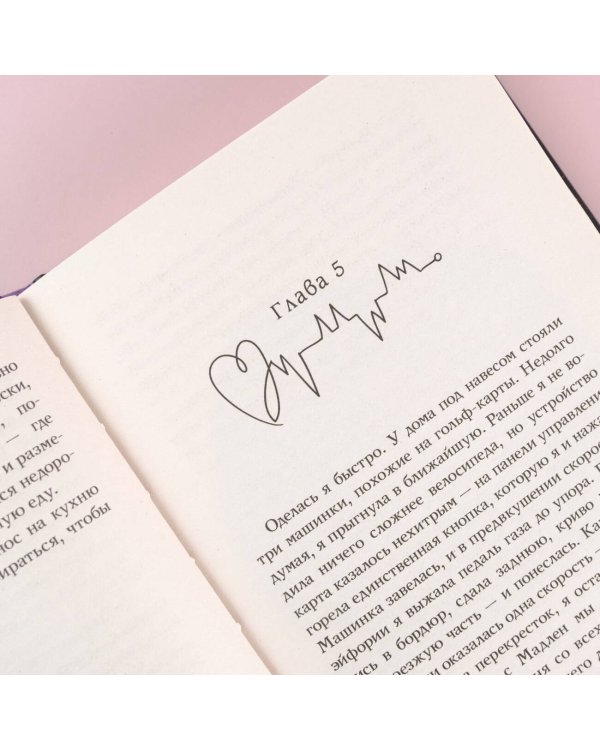 вно
ски,
, по-
— где
и разме-
ся недоро-
ную еду.
нос на кухню
ираться, чтобы
Глава 5
Оделась я быстро. У дома под навесом стояли
три машинки, похожие на гольф-карты. Недолго
думая, я прыгнула в ближайшую. Раньше я не во-
дила ничего сложнее велосипеда, но устройство
карта казалось нехитрым — на панели управлени
горела единственная кнопка, которую я и нажа
Машинка завелась, и в предвкушении скоро
эйфории я выжала педаль газа до упора.
ись в бордюр, сдала заднюю, криво
оезжую часть — и понеслась. Ка
и оказалась одна скорость —
перекресток, я оста
с Мадлен мы
ня со всех